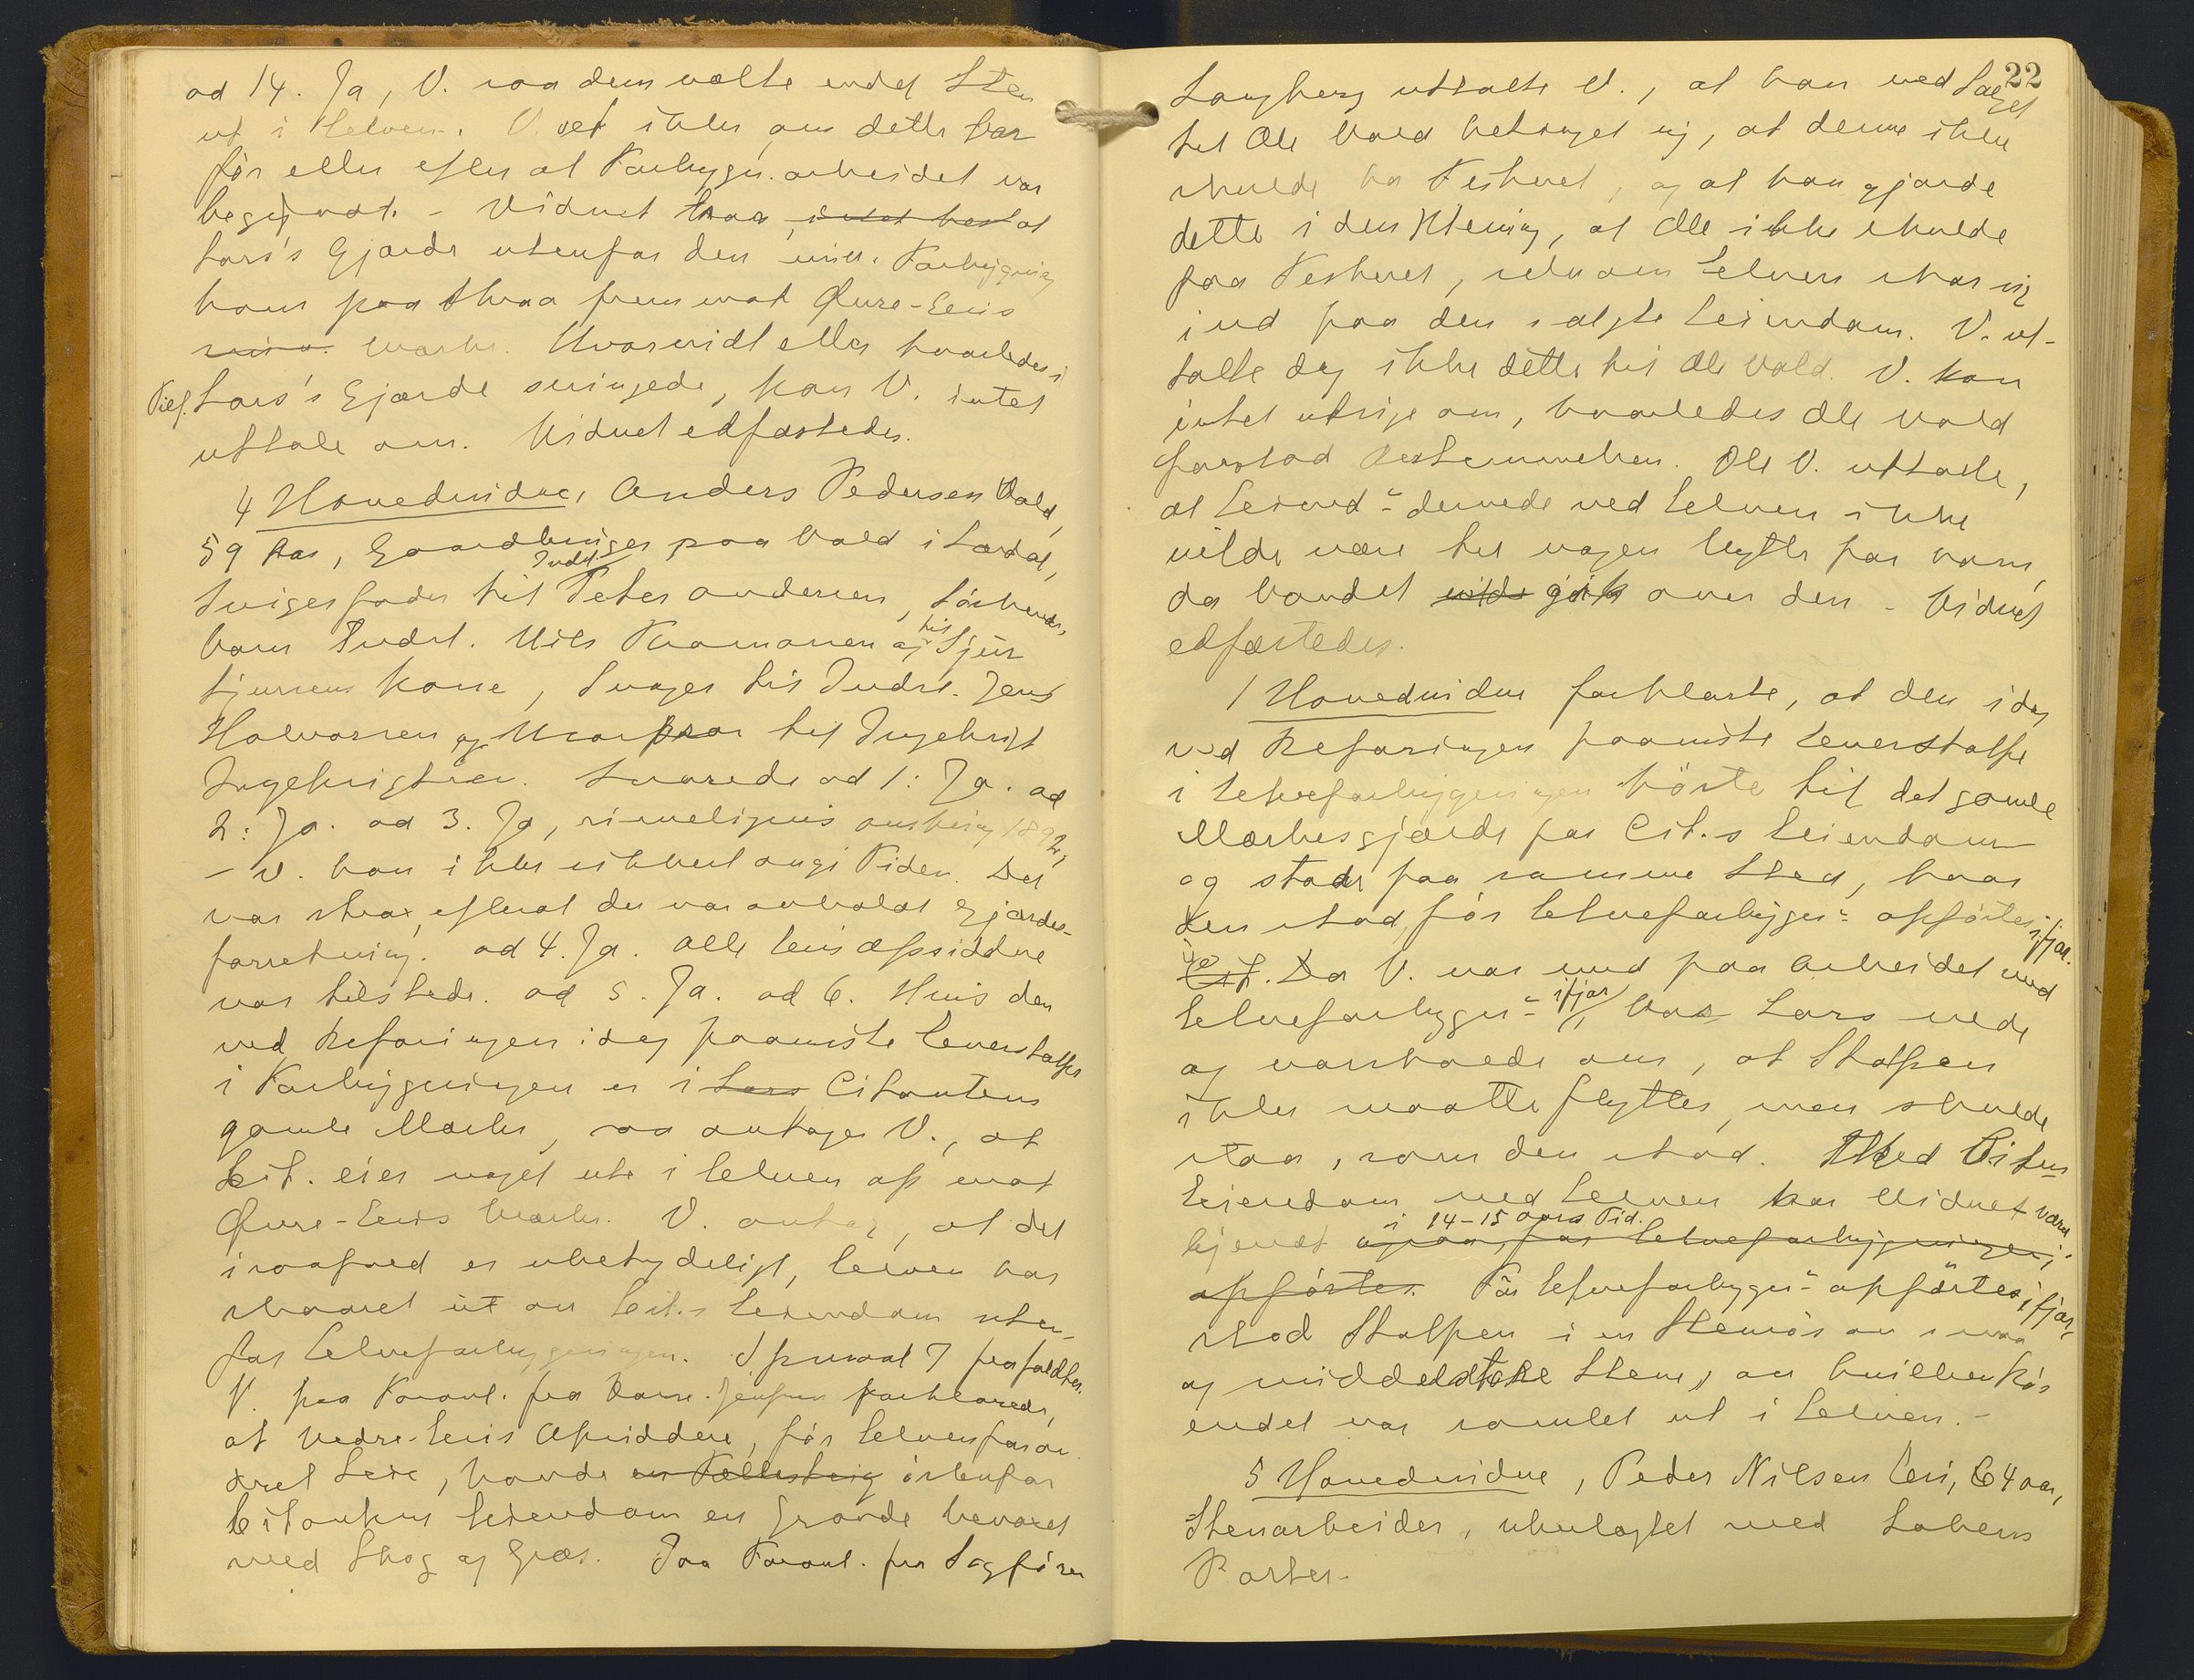 ad 14. Ja, V. saa dem vælte endel Sten
ut i Elven. V. vet ikke, om dette var
før eller efter at Forbygn.arbeidet var
begyndt. - Vidnet at
Lars's Gjærde utenfor den Forbygning
kom paa Skraa frem mot Øvre-Eris
Mærke. Hvorvidt eller hvorledes
Lars's Gjærde svingede, kan V. intet
uttale om. Vidnet edfæstedes.
4 Hovedvidne, Anders Pedersen Vold,
59 Aar, Gaardbruger paa Vold i Lærdal,
Svigerfader til Indst. Peter Andersen, Søskende-
barn Indst. Nils og til Sjur
Sjursens Kone, Svoger til Indst. Jens
Halvorsen og til Ingebrigt
Ingebrigtsen. Svarede ad 1: Ja. ad
2: Ja. ad 3. Ja, rimeligvis omkring 1892,
- V. kan ikke sikkert angi Tiden. Det
var strax, efterat der var avholdt Gjærdes-
forretning. ad 4. Ja. Alle Eris Opsiddere
var tilstede. ad 5. Ja. ad 6. Hvis den
ved Befaringen idag paaviste Everstolpe
i Forbygningen er i Lars Citantens
gamle Mærke, saa antager V., at
Cit. eier noget ute i Elven op mot
Øvre-Eris Mærke. V. antar, at det
isaafald er ubetydeligt, Elven har
skaaret ut av Cit.s Eiendom uten-
for Elveforbygningen. Spørsmaal 7 frafaldtes.
V. paa Foranl. fra forklarede,
at Nedre-Eris Opsiddere, før Elven foran-
dret Leie, havde en Fælles østenfor
Citantens Eiendom en Grande bevoxet
med Skog og Græs. Paa Foranl. fra Sagfører
22
Langberg uttalte V., at han ved Salget
til Ole Vold betinget sig, at denne ikke
skulde ha Fiskeret, og at han gjorde
dette i den Mening, at Ole ikke skulde
faa Fiskeret, selv om Elven skar sig
ind paa den solgte Eiendom. V. ut-
talte dog ikke dette til Ole Vold. V. kan
intet utsige om, hvorledes Ole Vold
forstod Bestemmelsen. Ole V. uttalte,
at Eiend- dernede ved Elven ikke
vilde være til nogen Nytte for ham,
da Vandet vilde gik over den - Vidnet
edfæstedes.
1 Hovedvidne forklarte, at den idag
ved Befaringen paaviste Everstolpe
i Elveforbygningen hørte til det gamle
Mærkesgjærde for Cit.s Eiendom
og stod paa samme Sted, hvor
den stod, før Elveforbygn- opførtes ifjor.
Da V. var med paa Arbeidet med
Elveforbygn- ifjor, var Lars nede
og varskoede om, at Stolpen
ikke maatte flyttes, men skulde
staa, som den stod. Med Citus
Eiendom ved Elven har Vidnet været
kjendt i 14-15 Aars Tid. for Elveforbygningen
opførtes. Før Elveforbygn- opførtes ifjor,
stod Stolpen i en Stenrøs av smaa
og middelstore Stene, av hvilken Røs
endel var ramlet ut i Elven. -
5 Hovedvidne, Peder Nilsen Eri, 64 aar,
Stenarbeider, ubeslægtet med Sakens
Parter. -